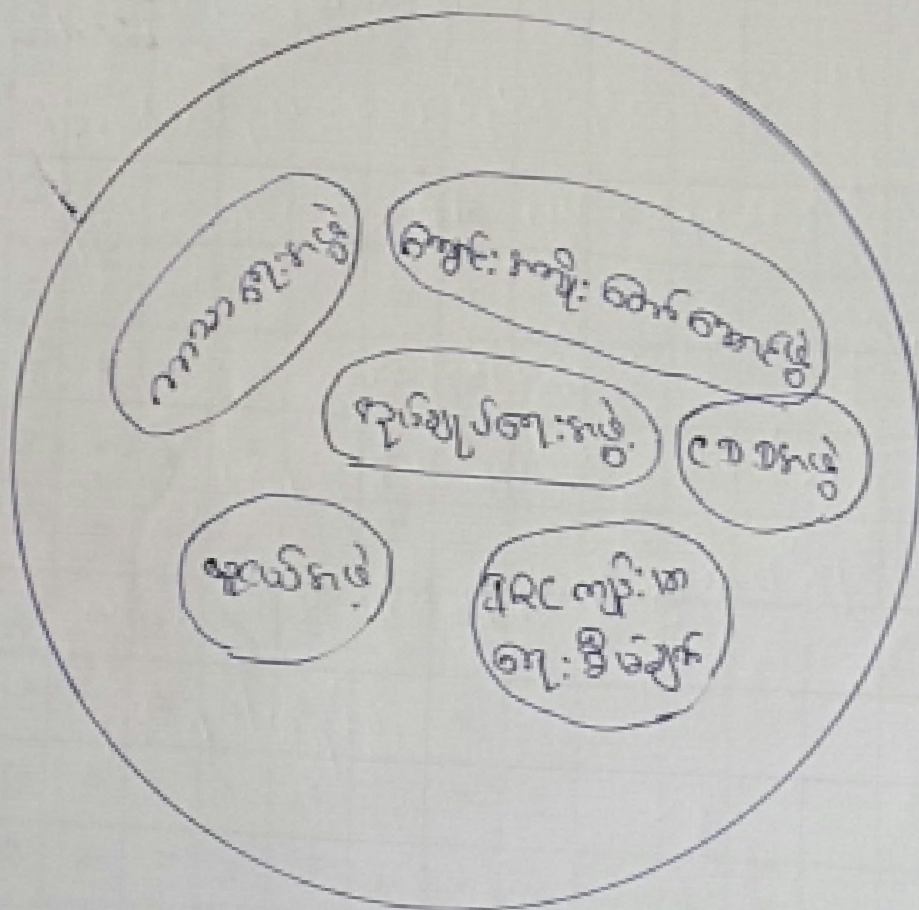 ဘာသာရေးအဖွဲ့
ကျောင်းအကျိုးတော်ဆောင်ဖွဲ့
အုပ်ချုပ်ရေးအဖွဲ့
CDDအဖွဲ့
လူငယ်အဖွဲ့
IRC ကျန်းမာ
ရေးစီမံချက်